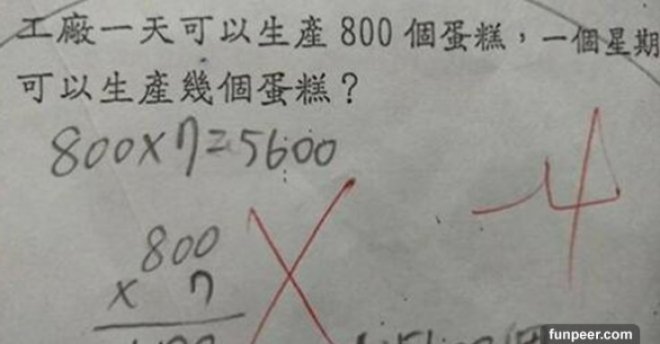 工廠一天可以生產 800 個蛋糕，一個星期
可以生產幾個蛋糕？
800×7=5600
-4
800
× 7
funpeer.com